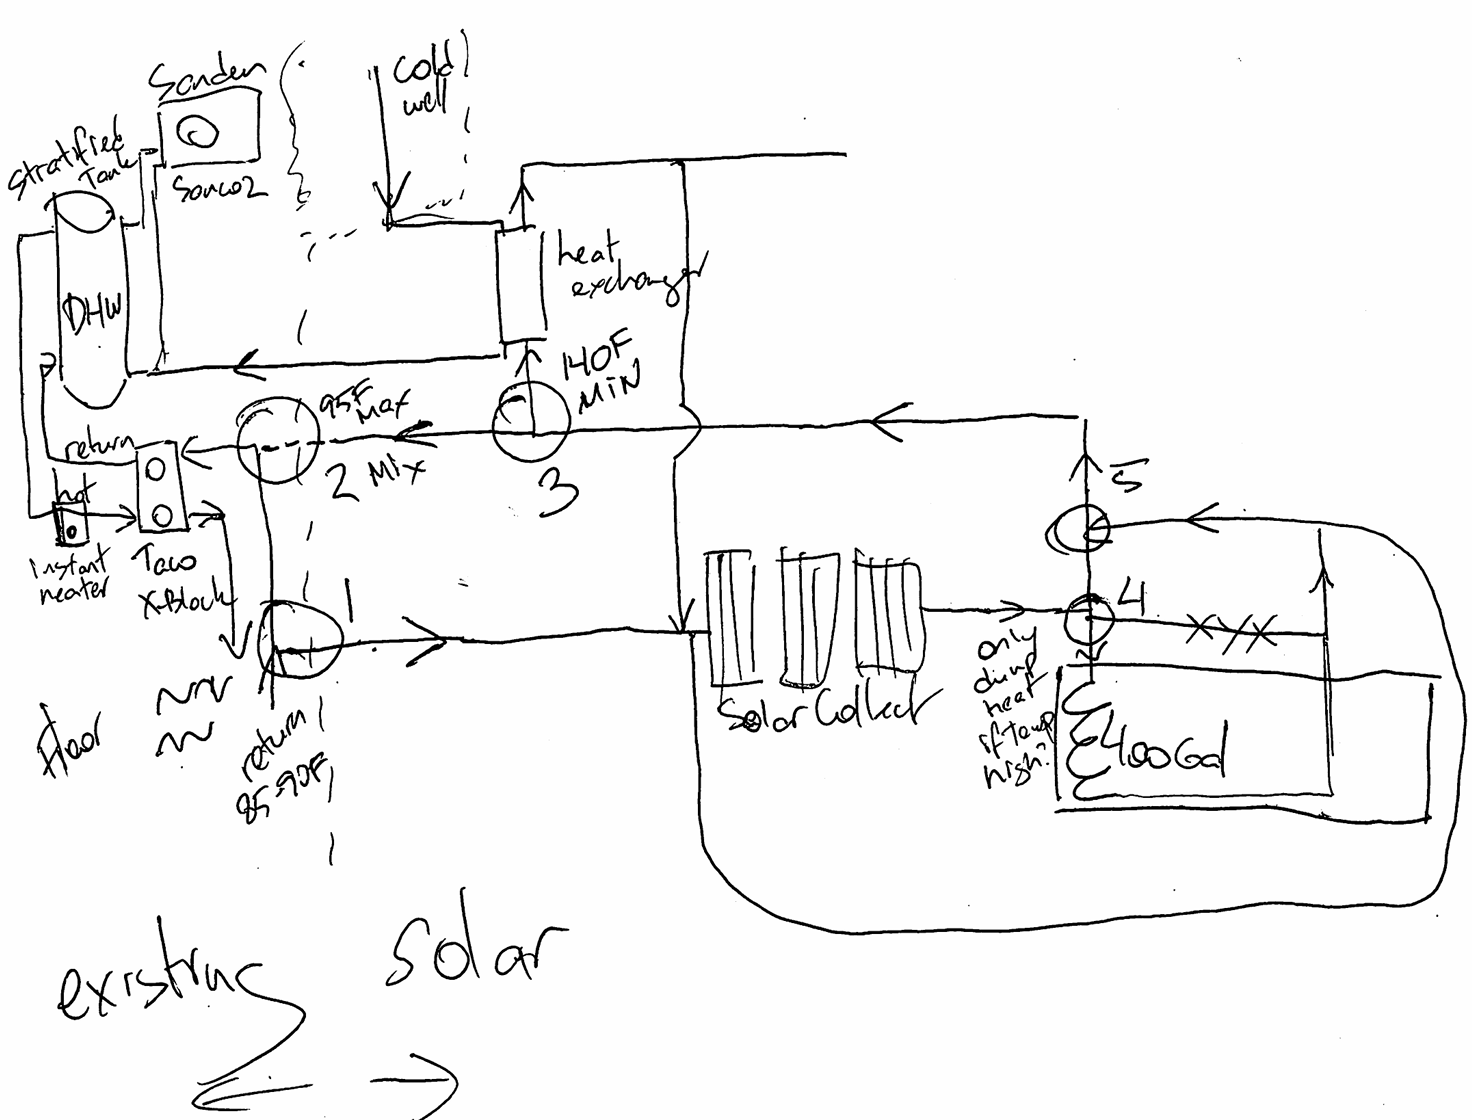 Sanden
cold
well
stratified
Tank
Sanco2
DHW
heat
exchanger
140F
MIN
95F
Max
2 Mix
3
return
hot
instant
heater
Taco
X-Block
1
5
4
only
dump
heat
if Temp
high?
Solar Collect
400Gal
floor
return
85-90F
existing
solar